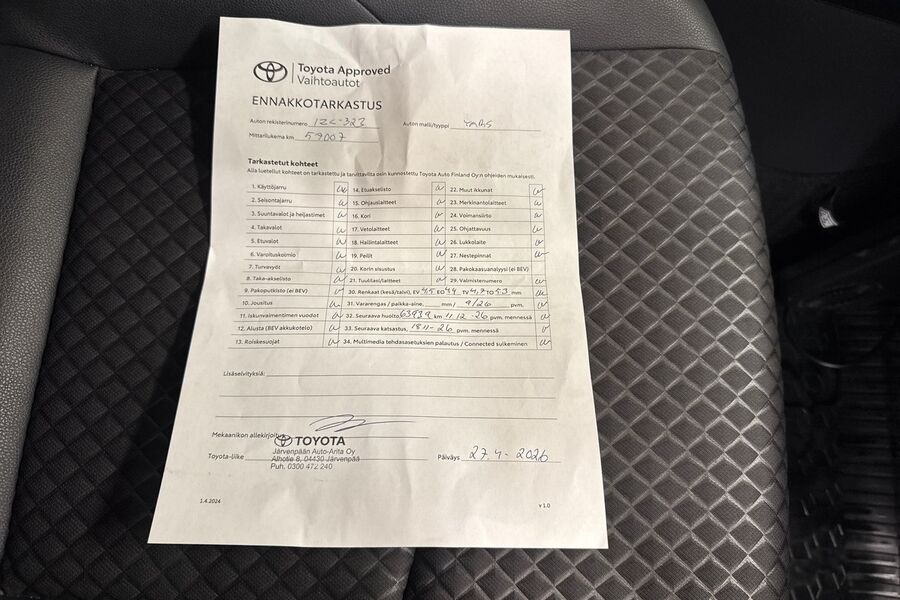 Toyota Approved
Vaihtoautot
ENNAKKOTARKASTUS
Auton rekisterinumero IZC-322 Auton malli/tyyppi YARIS
Mittarilukema km 59007
Tarkastetut kohteet
Alla luetellut kohteet on tarkastettu ja tarvittavilta osin kunnostettu Toyota Auto Finland Oy:n ohjeiden mukaisesti.
1. Käyttöjarru 14. Etuakselisto 22. Muut ikkunat
2. Seisontajarru 15. Ohjauslaitteet 23. Merkinantolaitteet
3. Suuntavalot ja heijastimet 16. Kori 24. Voimansiirto
4. Takavalot 17. Vetolaitteet 25. Ohjattavuus
5. Etuvalot 18. Hallintalaitteet 26. Lukkolaite
6. Varoituskolmio 19. Peilit 27. Nestepinnat
7. Turvavyöt 20. Korin sisustus 28. Pakokaasuanalyysi (ei BEV)
8. Taka-akselisto 21. Tuulilasi/laitteet 29. Valmistenumero
9. Pakoputkisto (ei BEV) 30. Renkaat (kesä/talvi), EV 4,5 EO 4,4 TV 4,7 TO 5,3 mm
10. Jousitus 31. Vararengas / paikka-aine, mm / 9/26 pvm.
11. Iskunvaimentimen vuodot 32. Seuraava huolto, 63939 km 11.12-26 pvm. mennessä
12. Alusta (BEV akkukotelo) 33. Seuraava katsastus, 18.11-26 pvm. mennessä
13. Roiskesuojat 34. Multimedia tehdasasetuksien palautus / Connected sulkeminen
Lisäselvityksiä:
Mekaanikon allekirjoitus
TOYOTA
Toyota-liike Järvenpään Auto-Arita Oy Päiväys 27.4-2026
Alhotie 8, 04430 Järvenpää
Puh. 0300 472 240
1.4.2024 v 1.0